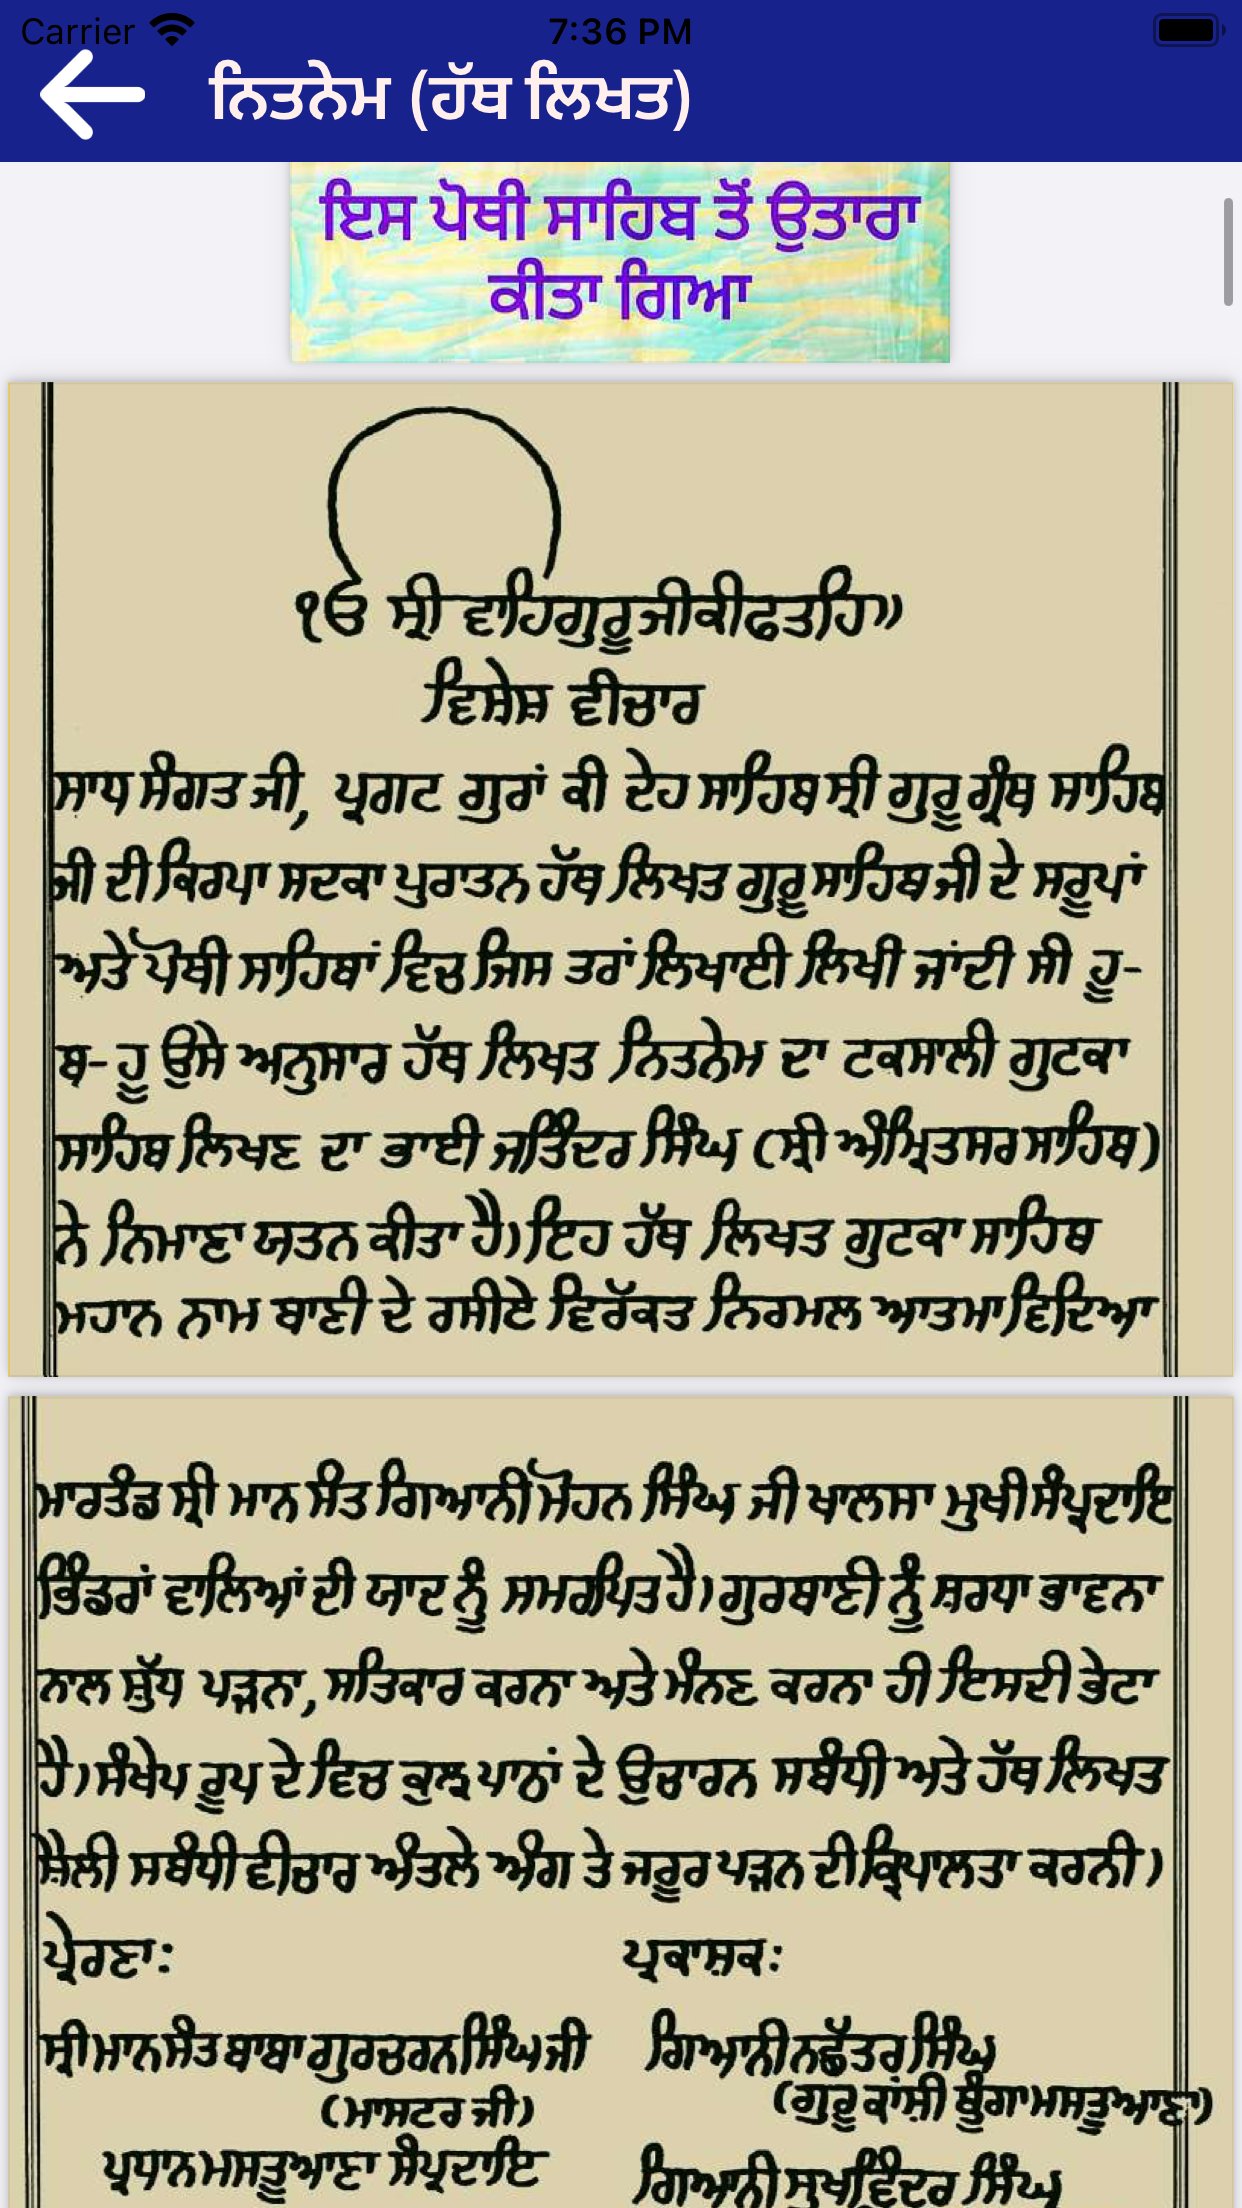 Carrier 7:36 PM
ਨਿਤਨੇਮ (ਹੱਥ ਲਿਖਤ)
ਇਸ ਪੋਥੀ ਸਾਹਿਬ ਤੋਂ ਉਤਾਰਾ
ਕੀਤਾ ਗਿਆ
ੴ ਸ੍ਰੀ ਵਾਹਿਗੁਰੂ ਜੀ ਕੀ ਫਤਹਿ॥
ਵਿਸ਼ੇਸ਼ ਵੀਚਾਰ
ਸਾਧ ਸੰਗਤ ਜੀ, ਪ੍ਰਗਟ ਗੁਰਾਂ ਕੀ ਦੇਹ ਸਾਹਿਬ ਸ੍ਰੀ ਗੁਰੂ ਗ੍ਰੰਥ ਸਾਹਿਬ
ਜੀ ਦੀ ਕਿਰਪਾ ਸਦਕਾ ਪੁਰਾਤਨ ਹੱਥ ਲਿਖਤ ਗੁਰੂ ਸਾਹਿਬ ਜੀ ਦੇ ਸਰੂਪਾਂ
ਅਤੇ ਪੋਥੀ ਸਾਹਿਬਾਂ ਵਿਚ ਜਿਸ ਤਰਾਂ ਲਿਖਾਈ ਲਿਖੀ ਜਾਂਦੀ ਸੀ ਹੂ-
ਬ-ਹੂ ਉਸੇ ਅਨੁਸਾਰ ਹੱਥ ਲਿਖਤ ਨਿਤਨੇਮ ਦਾ ਟਕਸਾਲੀ ਗੁਟਕਾ
ਸਾਹਿਬ ਲਿਖਣ ਦਾ ਭਾਈ ਜਤਿੰਦਰ ਸਿੰਘ (ਸ੍ਰੀ ਅੰਮ੍ਰਿਤਸਰ ਸਾਹਿਬ)
ਨੇ ਨਿਮਾਣਾ ਯਤਨ ਕੀਤਾ ਹੈ। ਇਹ ਹੱਥ ਲਿਖਤ ਗੁਟਕਾ ਸਾਹਿਬ
ਮਹਾਨ ਨਾਮ ਬਾਣੀ ਦੇ ਰਸੀਏ ਵਿਰੱਕਤ ਨਿਰਮਲ ਆਤਮਾ ਵਿਦਿਆ
ਮਾਰਤੰਡ ਸ੍ਰੀ ਮਾਨ ਸੰਤ ਗਿਆਨੀ ਮੋਹਨ ਸਿੰਘ ਜੀ ਖਾਲਸਾ ਮੁਖੀ ਸੰਪ੍ਰਦਾਇ
ਭਿੰਡਰਾਂ ਵਾਲਿਆਂ ਦੀ ਯਾਦ ਨੂੰ ਸਮਰਪਿਤ ਹੈ। ਗੁਰਬਾਣੀ ਨੂੰ ਸ਼ਰਧਾ ਭਾਵਨਾ
ਨਾਲ ਸ਼ੁੱਧ ਪੜ੍ਹਨਾ, ਸਤਿਕਾਰ ਕਰਨਾ ਅਤੇ ਮੰਨਣ ਕਰਨਾ ਹੀ ਇਸਦੀ ਭੇਟਾ
ਹੈ। ਸੰਖੇਪ ਰੂਪ ਦੇ ਵਿਚ ਕੁਲਝ ਪਾਠਾਂ ਦੇ ਉਚਾਰਨ ਸਬੰਧੀ ਅਤੇ ਹੱਥ ਲਿਖਤ
ਸ਼ੈਲੀ ਸਬੰਧੀ ਵੀਚਾਰ ਅੰਤਲੇ ਅੰਗ ਤੇ ਜਰੂਰ ਪੜ੍ਹਨ ਦੀ ਕ੍ਰਿਪਾਲਤਾ ਕਰਨੀ।
ਪ੍ਰੇਰਣਾ: ਪ੍ਰਕਾਸ਼ਕ:
ਸ੍ਰੀ ਮਾਨ ਸੰਤ ਬਾਬਾ ਗੁਰਚਰਨ ਸਿੰਘ ਜੀ ਗਿਆਨੀ ਨਛੱਤਰ ਸਿੰਘ
(ਮਾਸਟਰ ਜੀ) (ਗੁਰੂ ਕਾਂਸ਼ੀ ਬੁੰਗਾ ਮਸਤੂਆਣਾ)
ਪ੍ਰਧਾਨ ਮਸਤੂਆਣਾ ਸੰਪ੍ਰਦਾਇ ਗਿਆਨੀ ਸੁਖਵਿੰਦਰ ਸਿੰਘ